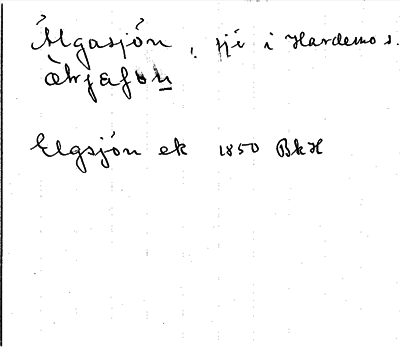 Älgasjön, sjö i Hardemo s.
Elgsjön ek 1850 BkH